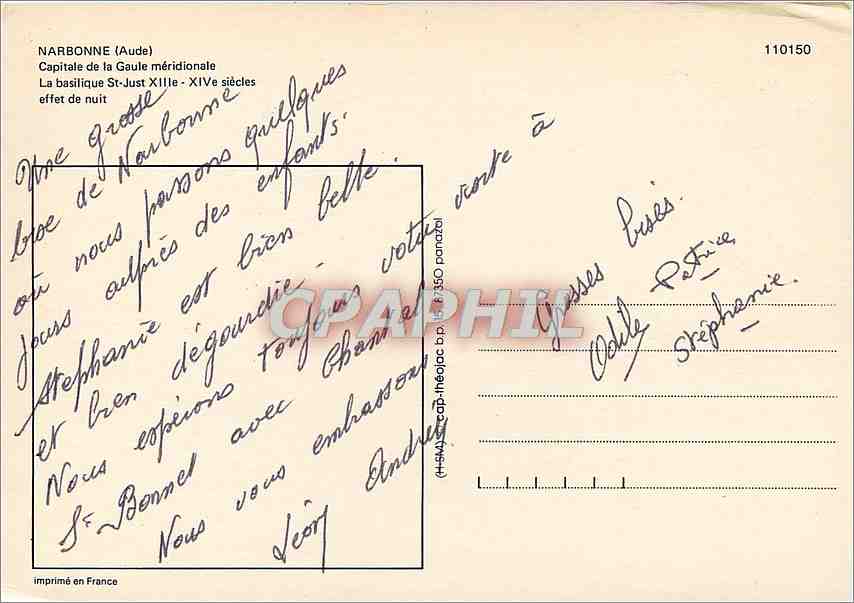 NARBONNE (Aude)
Capitale de la Gaule méridionale
La basilique St-Just XIIIe - XIVe siècles
effet de nuit
110150
Une grosse
bise de Narbonne
où nous passons quelques
jours auprès des enfants.
Stéphanie est bien belle.
et bien dégourdie -
Nous espérons toujours votre visite à
St Bonnet avec Chantal
Nous vous embrassons
Léon Andrée
Grosses bises.
Odile Patrice
Stéphanie.
(H-SM) cap-théojac b.p. 15, 87350 panazol
CPAPHIL
imprimé en France